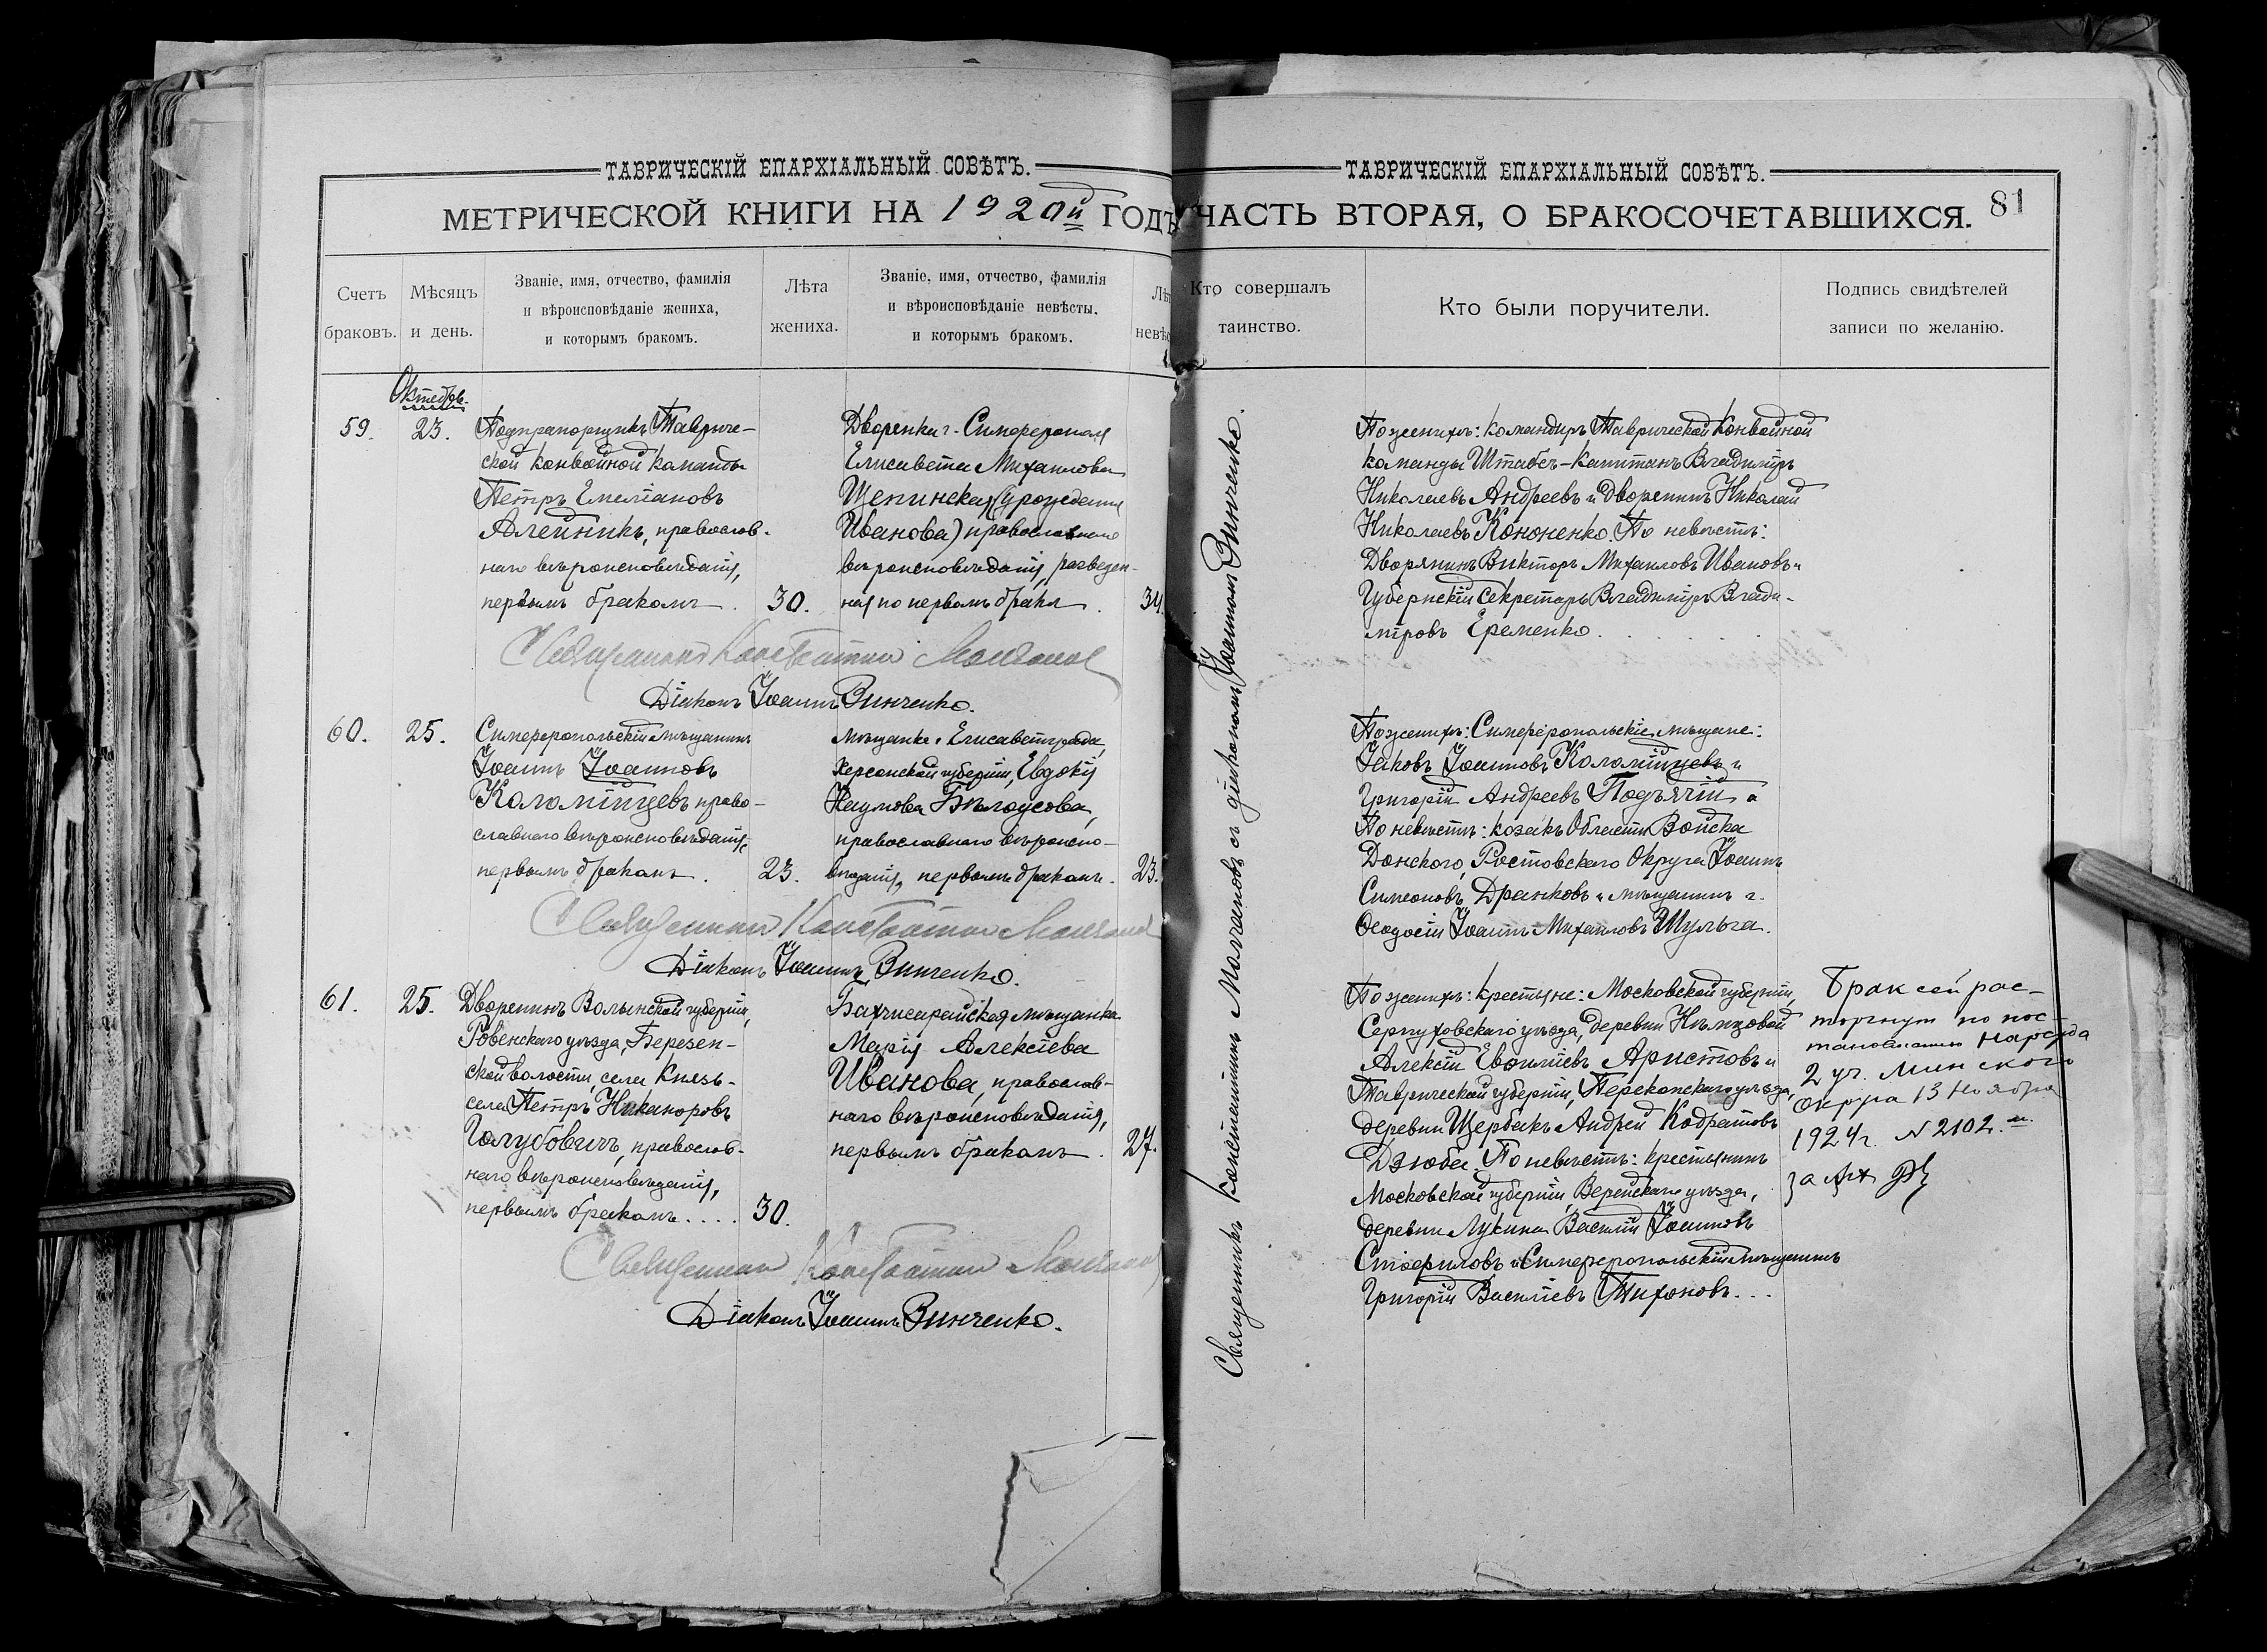 ТАВРИЧЕСКІЙ ЕПАРХІАЛЬНЫЙ СОВѢТЪ.
МЕТРИЧЕСКОЙ КНИГИ НА 1920й ГОДЪ
Счетъ браковъ.
Мѣсяцъ и день.
Званіе, имя, отчество, фамилія
и вѣроисповѣданіе жениха,
и которымъ бракомъ.
Лѣта жениха.
Званіе, имя, отчество, фамилія
и вѣроисповѣданіе невѣсты,
и которымъ бракомъ.
Октябрь
59.
23.
Подпрапорщикъ Тавриче-
ской конвойной команды
Петръ Емеліановъ
Алейникъ, православ-
наго вѣроисповѣданія,
первымъ бракомъ.
30.
Дворянка г. Симферополя
Елисавета Михаилова
Щепинская (урожденная
Иванова) православнаго
вѣроисповѣданія, разведен-
ная по первомъ бракѣ.
34.
Священникъ Константинъ Молчановъ
Діаконъ Іоаннъ Винченко.
60.
25.
Симферопольскій мѣщанинъ
Іоаннъ Іоанновъ
Коломійцевъ право-
славнаго вѣроисповѣданія,
первымъ бракомъ.
23.
Мѣщанка г. Елисаветграда,
Херсонской губерніи, Евдокія
Наумова Бѣлоусова,
православнаго вѣроиспо-
вѣданія, первымъ бракомъ.
23.
Священникъ Константинъ Молчановъ
Діаконъ Іоаннъ Винченко.
61.
25.
Дворянинъ Волынской губерніи,
Ровенскаго уѣзда, Березен-
ской волости, села Князь-
села Петръ Никаноровъ
Голубовичъ, православ-
наго вѣроисповѣданія,
первымъ бракомъ....
30.
Бахчисарайская мѣщанка
Марія Алексіева
Иванова, православ-
наго вѣроисповѣданія,
первымъ бракомъ.
27.
Священникъ Константинъ Молчановъ
Діаконъ Іоаннъ Винченко.
ТАВРИЧЕСКІЙ ЕПАРХІАЛЬНЫЙ СОВѢТЪ.
ЧАСТЬ ВТОРАЯ, О БРАКОСОЧЕТАВШИХСЯ.
81
Кто совершалъ
таинство.
Кто были поручители.
Подпись свидѣтелей
записи по желанію.
Священникъ Константинъ Молчановъ съ діакономъ Іоанномъ Винченко.
По женихѣ: командиръ Таврической Конвойной
команды Штабсъ-Капитанъ Владиміръ
Николаевъ Андреевъ и дворянинъ Николай
Николаевъ Кононенко. По невѣстѣ:
Дворянинъ Викторъ Михаиловъ Ивановъ и
Губернскій Секретарь Владиміръ Влади-
міровъ Еременко.
По женихѣ: Симферопольскіе мѣщане:
Іаковъ Іоанновъ Коломійцевъ и
Григорій Андреевъ Подъячій
По невѣстѣ: козакъ Области Войска
Донского, Ростовскаго Округа Іоаннъ
Симеоновъ Дранковъ и мѣщанинъ г.
Ѳеодосіи Іоаннъ Михаиловъ Шульга.
По женихѣ: крестьяне: Московской губерніи,
Серпуховскаго уѣзда, деревни
Алексій Аристовъ и
Таврической губерніи, Перекопскаго уѣзда,
деревни Щербакъ Андрей Кодратовъ
Дзюба. По невѣстѣ: крестьянинъ
Московской губерніи, Верейскаго уѣзда,
деревни Лукина Василій Іоанновъ
и Симферопольскій мѣщанинъ
Григорій Василіевъ Тихоновъ...
Брак сей рас-
торгнут по пос-
тановлению Нарсуда
2 уч. Минского
округа 13 ноября
1924 г. N 2102.